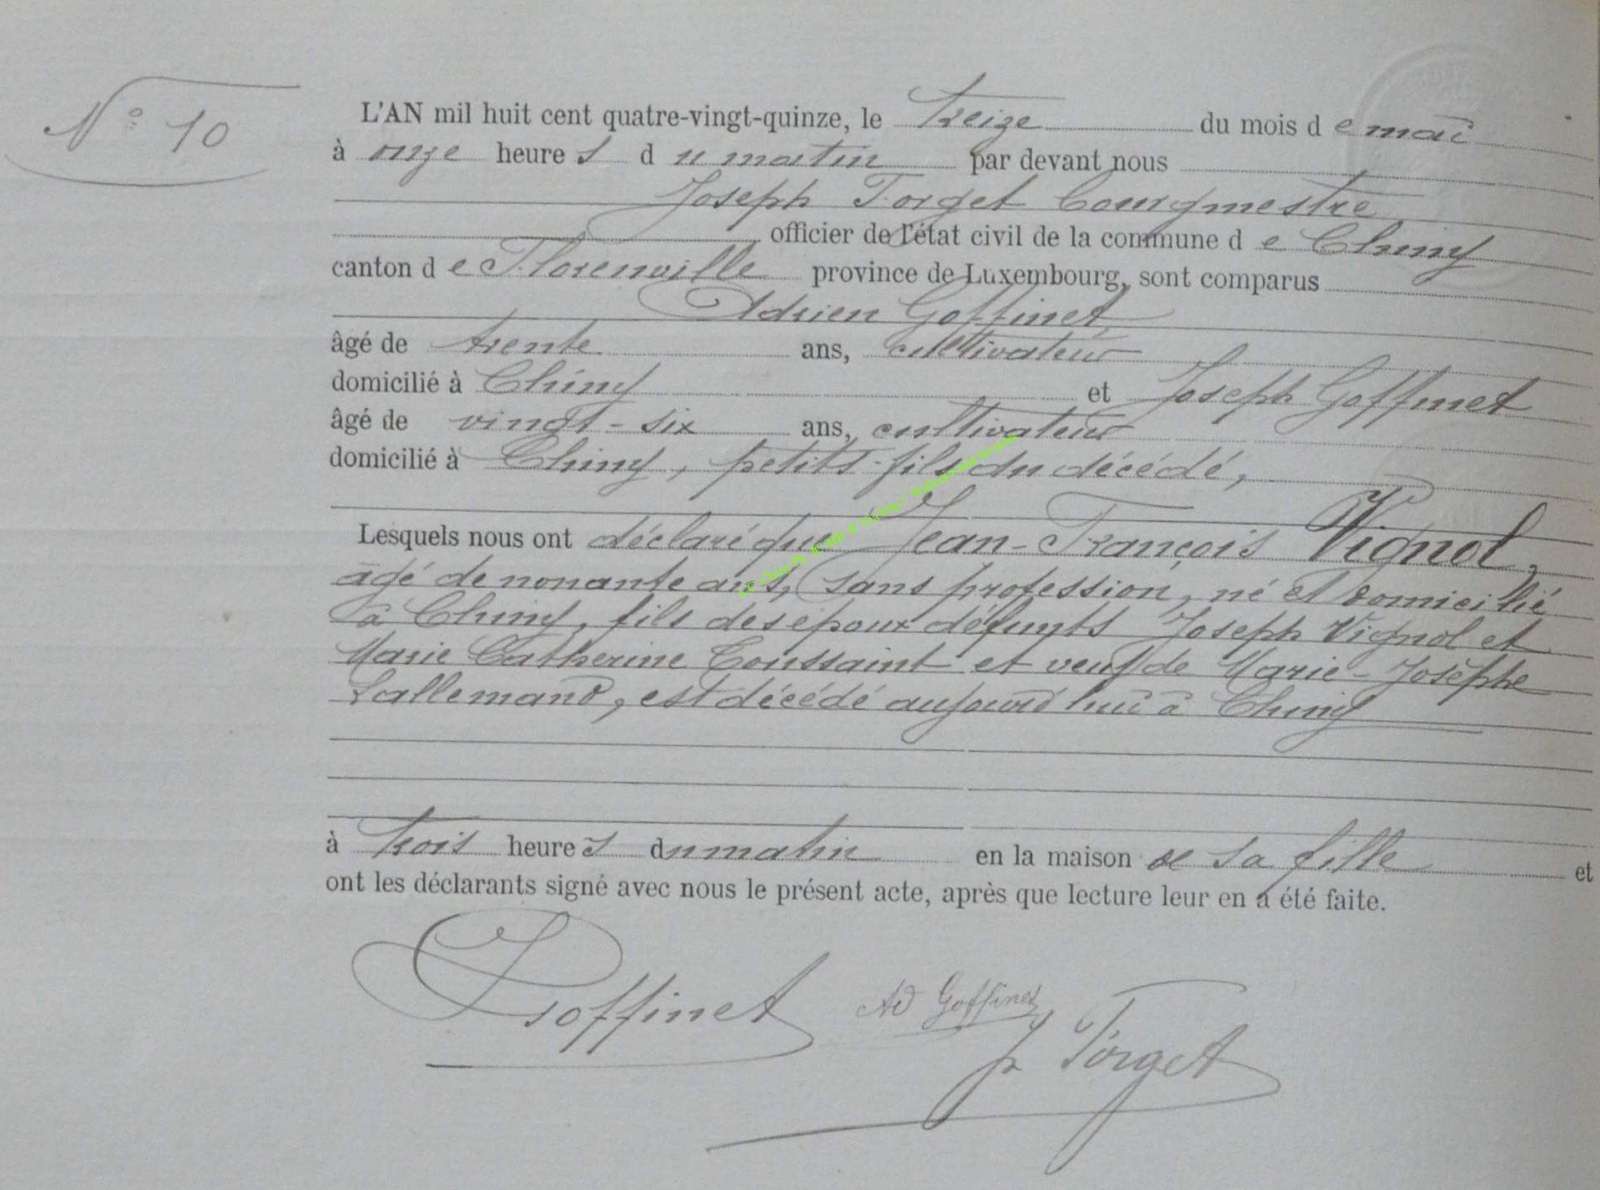 N° 10
L'AN mil huit cent quatre-vingt-quinze, le treize du mois de mai
à onze heures du matin par devant nous
Joseph Forget bourgmestre
officier de l'état civil de la commune de Chiny
canton de Florenville province de Luxembourg, sont comparus
Adrien Goffinet,
âgé de trente ans, cultivateur
domicilié à Chiny et Joseph Goffinet
âgé de vingt-six ans, cultivateur
domicilié à Chiny, petits-fils du décédé,
Lesquels nous ont déclaré que Jean-François Vignol,
âgé de nonante ans, sans profession, né et domicilié
à Chiny, fils des époux défunts Joseph Vignol et
Marie Catherine Toussaint et veuf de Marie-Josèphe
Lallemand, est décédé aujourd'hui à Chiny
à trois heures du matin en la maison de sa fille et
ont les déclarants signé avec nous le présent acte, après que lecture leur en a été faite.
J Goffinet Ad Goffinet
J Forget